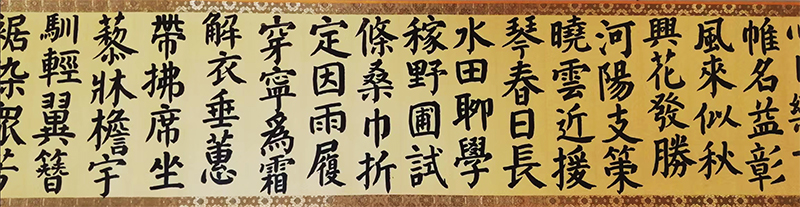 帷名益彰
風來似秋
興花發勝
河陽支策
曉雲近援
琴春日長
水田聊學
稼野圃試
條桑巾折
定因雨履
穿寧爲霜
解衣垂蕙
帶拂席坐
藜牀檐宇
馴輕翼簪
裾染衆芳